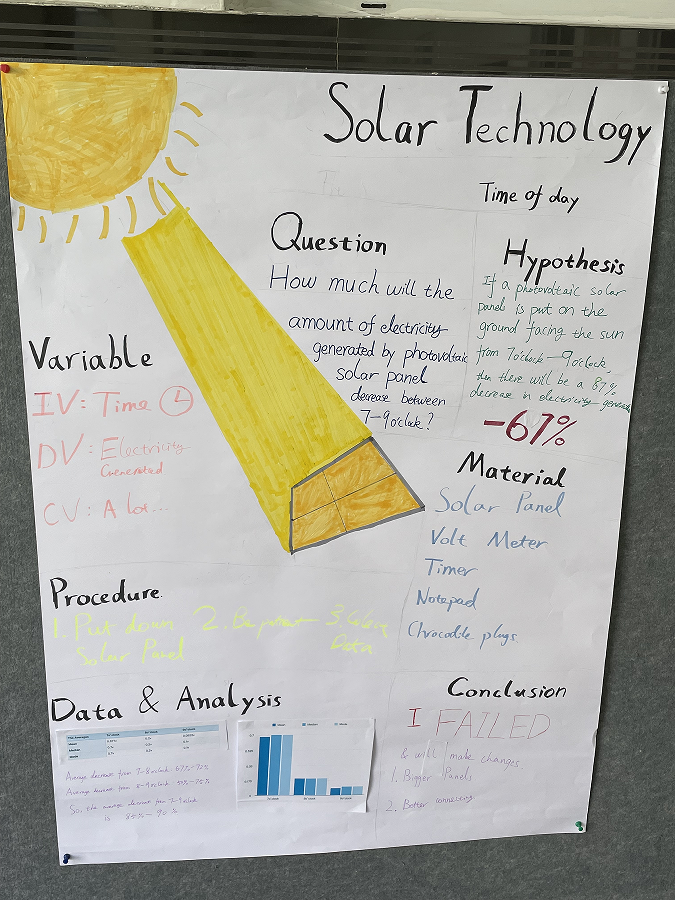 Solar Technology
Time of day
Question
How much will the
amount of electricity
generated by photovoltaic
solar panel
decrease between
7-9 o'clock?
Hypothesis
If a photovoltaic solar
panel is put on the
ground facing the sun
from 7o'clock - 9o'clock,
then there will be a 87%
decrease in electricity
-67%
Variable
IV: Time
DV: Electricity
Generated
CV: A lot...
Material
Solar Panel
Volt Meter
Timer
Notepad
Chrocodile plugs
Procedure
1. Put down
Solar Panel
2. Be patient
3. 
Data
Data & Analysis
Mean
Median
Average decrease from 7-8 o'clock
Average decrease from 8-9 o'clock
is 85% - 90%
Conclusion
I FAILED
& will make changes
1. Bigger Panels
2. Better connecting